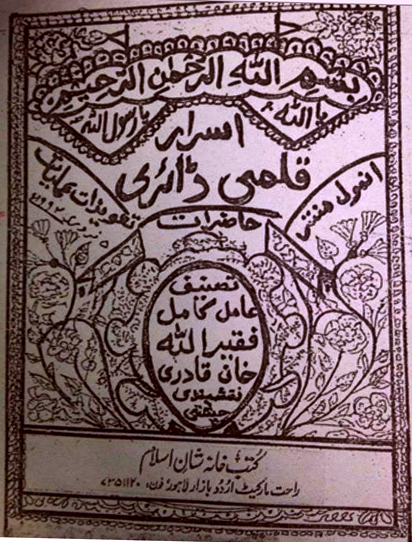 بسم الله الرحمن الرحيم
یا اللہ
یا رسول اللہ
اسرار
قلمی ڈائری
انمول منتر
تعویذات عملیات
حاضرات
تصنیف
عامل کامل
فقیر اللہ
خانی قادری
نقشبندی
چشتی
کتب خانہ شان اسلام
راحت مارکیٹ اردو بازار لاہور فون: ۷۳۵۱۱۲۰